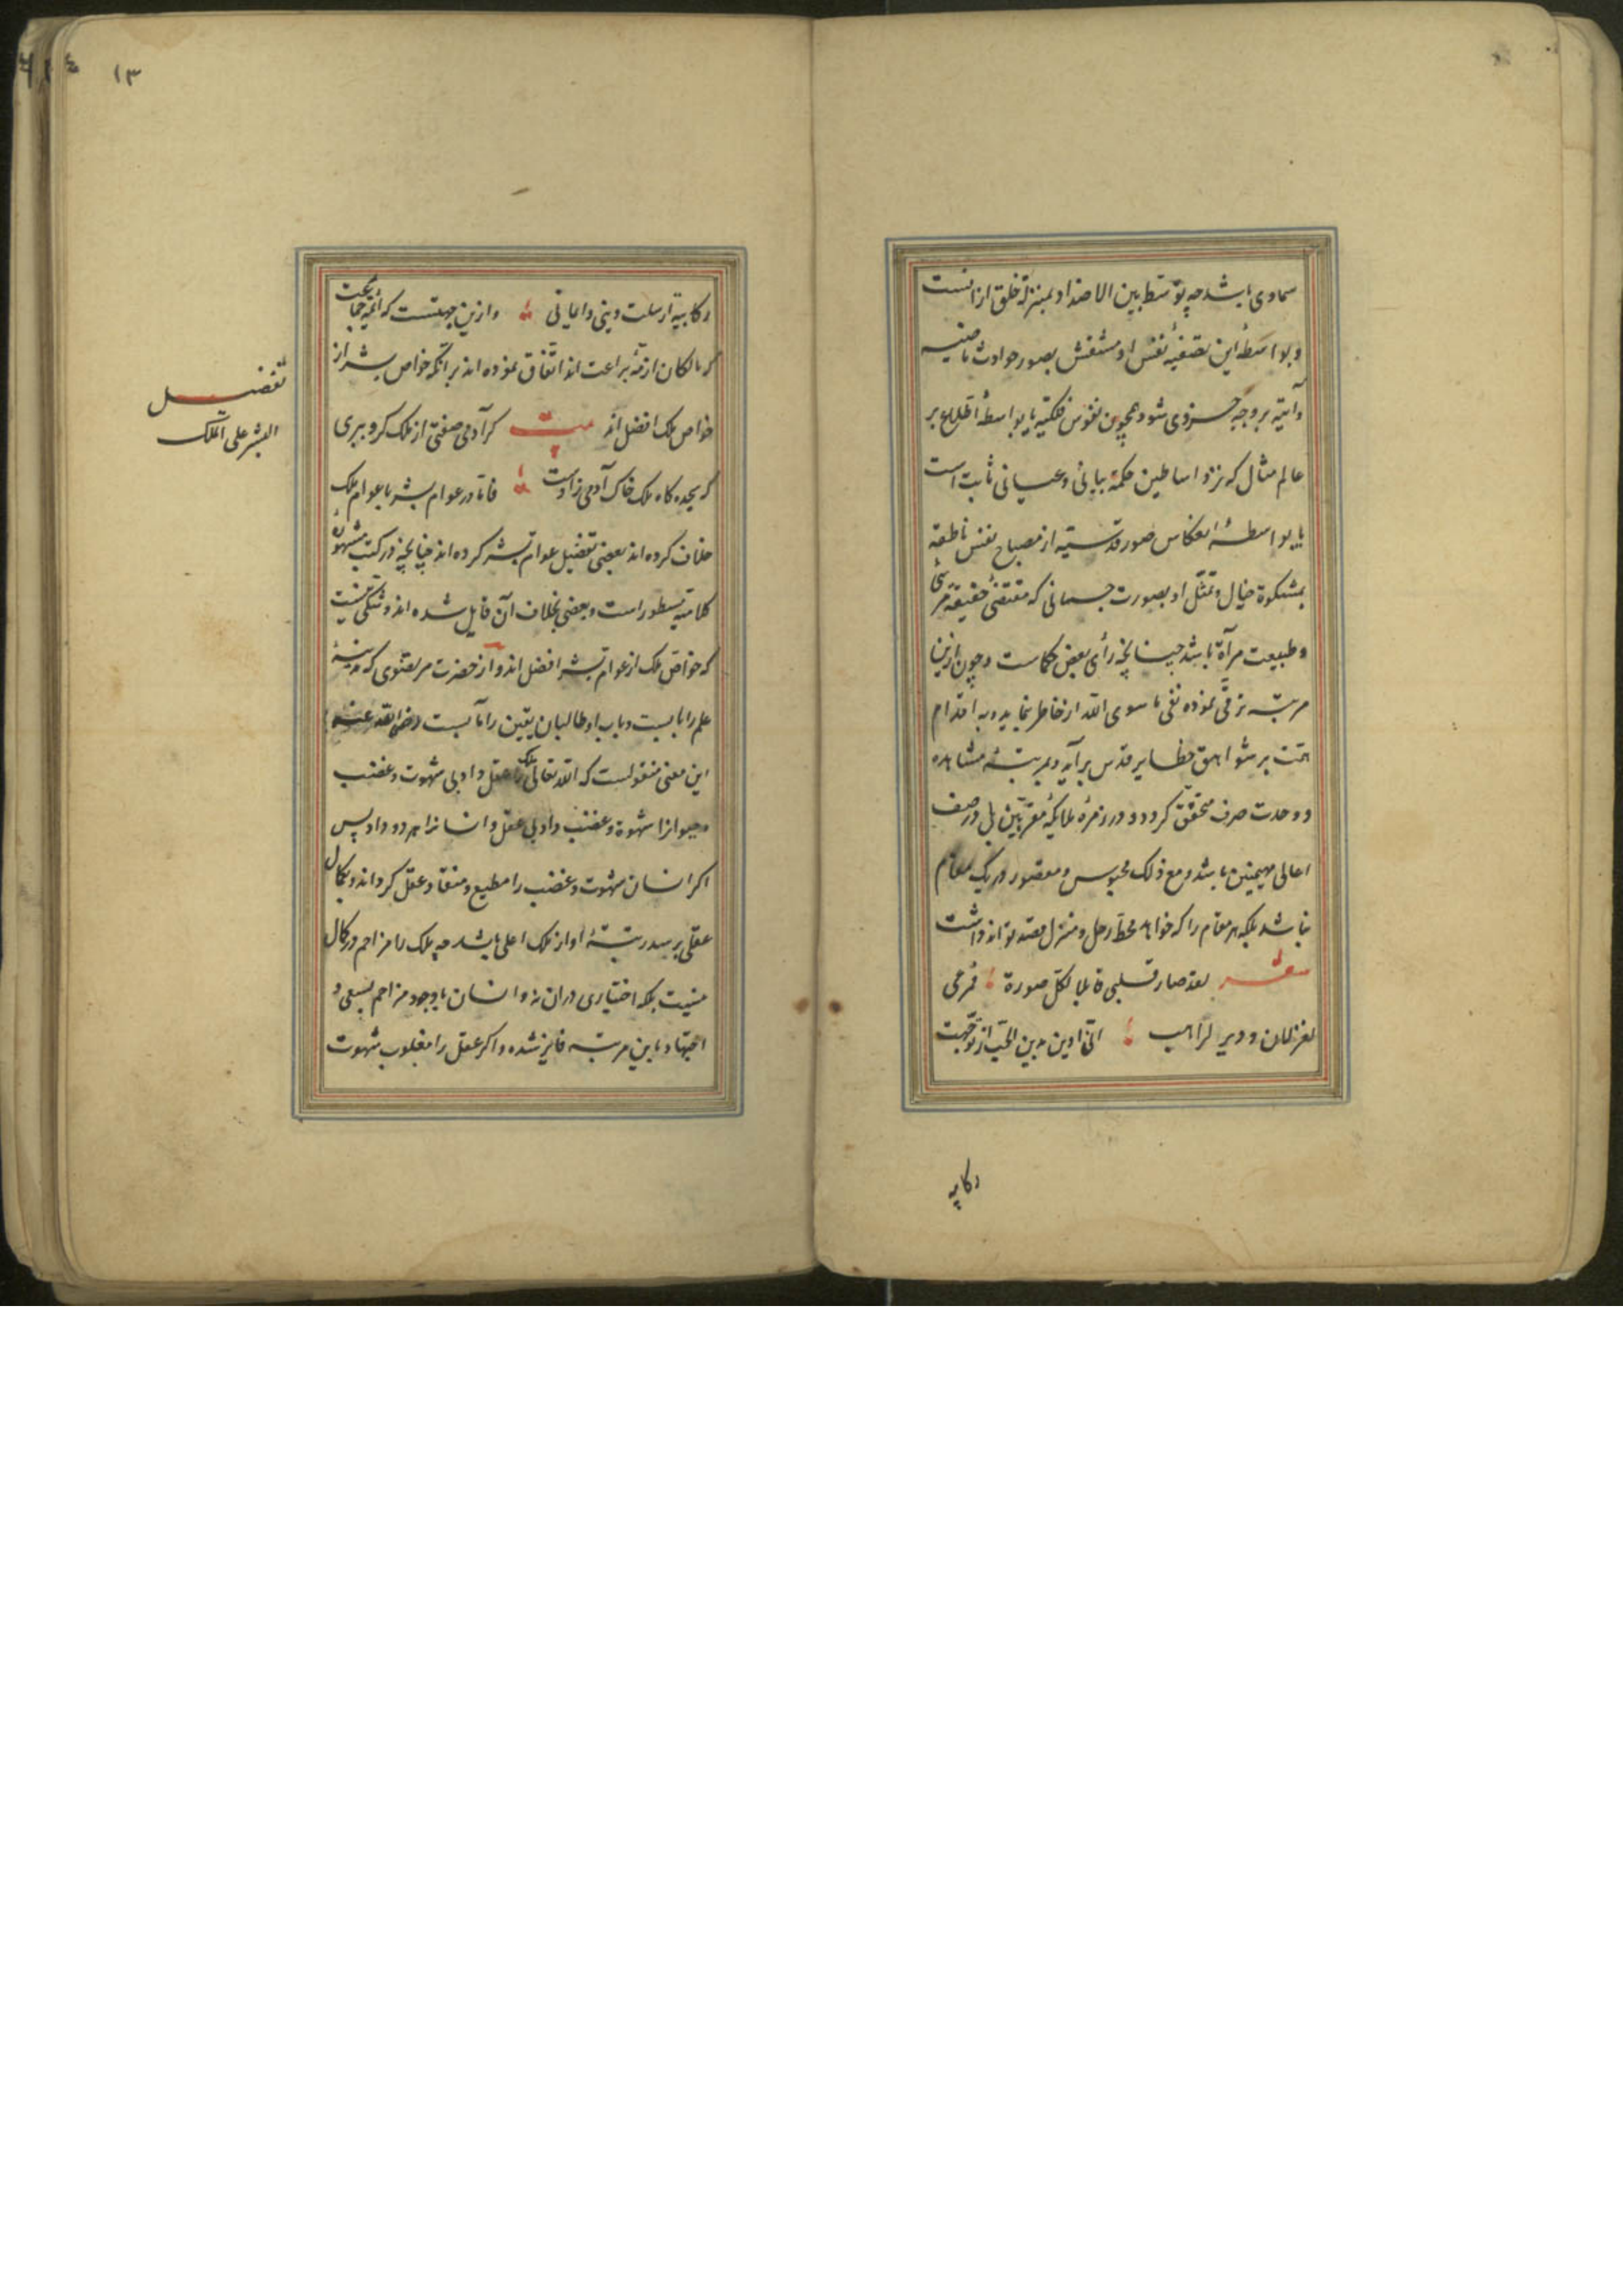 سماوی باشد چه توسط بین الاضداد بمنزلهٔ خلق ازانست
و بواسطهٔ این تصفیه نفس او منتقش بصور حوادث ماضیه
و آتیه بر وجه جزوی شود همچون نفوس فلکیه یا بواسطهٔ اطلاع بر
عالم مثال که نزد اساطین حکمة بیانی و عیانی ثابت است
یا بواسطهٔ انعکاس صور قدسیه از مصباح نفس ناطقه
بمشکوة خیال و تمثل او بصورت جسمانی که مقتضی حقیقة مرئی
و طبیعت مرآة باشد چنانچه رأی بعض حکماست و چون ازین
مرتبه ترقی نموده نفی ما سوی الله از خاطر نماید و به اقدام
همت بر شواهق حظایر قدس برآید و بمرتبهٔ مشاهده
و وحدت صرف متحقق کردد و در زمرهٔ ملایکهٔ مقربین بل در صف
اعالی مهیمنین باشد و مع ذلک محبوس و مقصور در یک مقام
نباشد بلکه هر مقام را که خواهد محط رحل و منزل قصد تواند داشت
شعر لقد صار قلبی قابلا لکل صورة فمرعی
لغزلان و دیر لراهب انی ادین بدین الحب انی توجهت
رکایبه
۱۳
رکایبه ارسلت دینی و ایمانی و ازین جهتست که ائمهٔ
که مالکان ازمهٔ براعت اند اتفاق نموده اند بر انکه خواص بشر از
خواص ملک افضل اند بیت کر آدمی صفتی از ملک کرو ببری
که سجده کاه ملک خاک آدمی زادست فاما در عوام بشر با عوام ملک
خلاف کرده اند بعضی تفضیل عوام بشر کرده اند چنانچه در کتب مشهورهٔ
کلامیه مسطور است و بعضی بخلاف آن قایل شده اند و شکی نیست
که خواص ملک از عوام بشر افضل اند و از حضرت مرتضوی که مدینهٔ
علم را بابست و باب او طالبان یقین را مآبست رضی الله عنه
این معنی منقولست که الله تعالی ملک را عقل داد بی شهوت و غضب
و حیوانرا شهوة و غضب داد بی عقل و انسانرا هر دو داد پس
اکر انسان شهوت و غضب را مطیع و منقاد عقل کرداند و بکمال
عقلی برسد رتبهٔ او از ملک اعلی باشد چه ملک را مزاحم در کمال
نیست بلکه اختیاری دران نه و انسان با وجود مزاحم بسعی و
اجتهاد باین مرتبه فایز شده و اکر عقل را مغلوب شهوت
تفضیل
البشر علی الملک